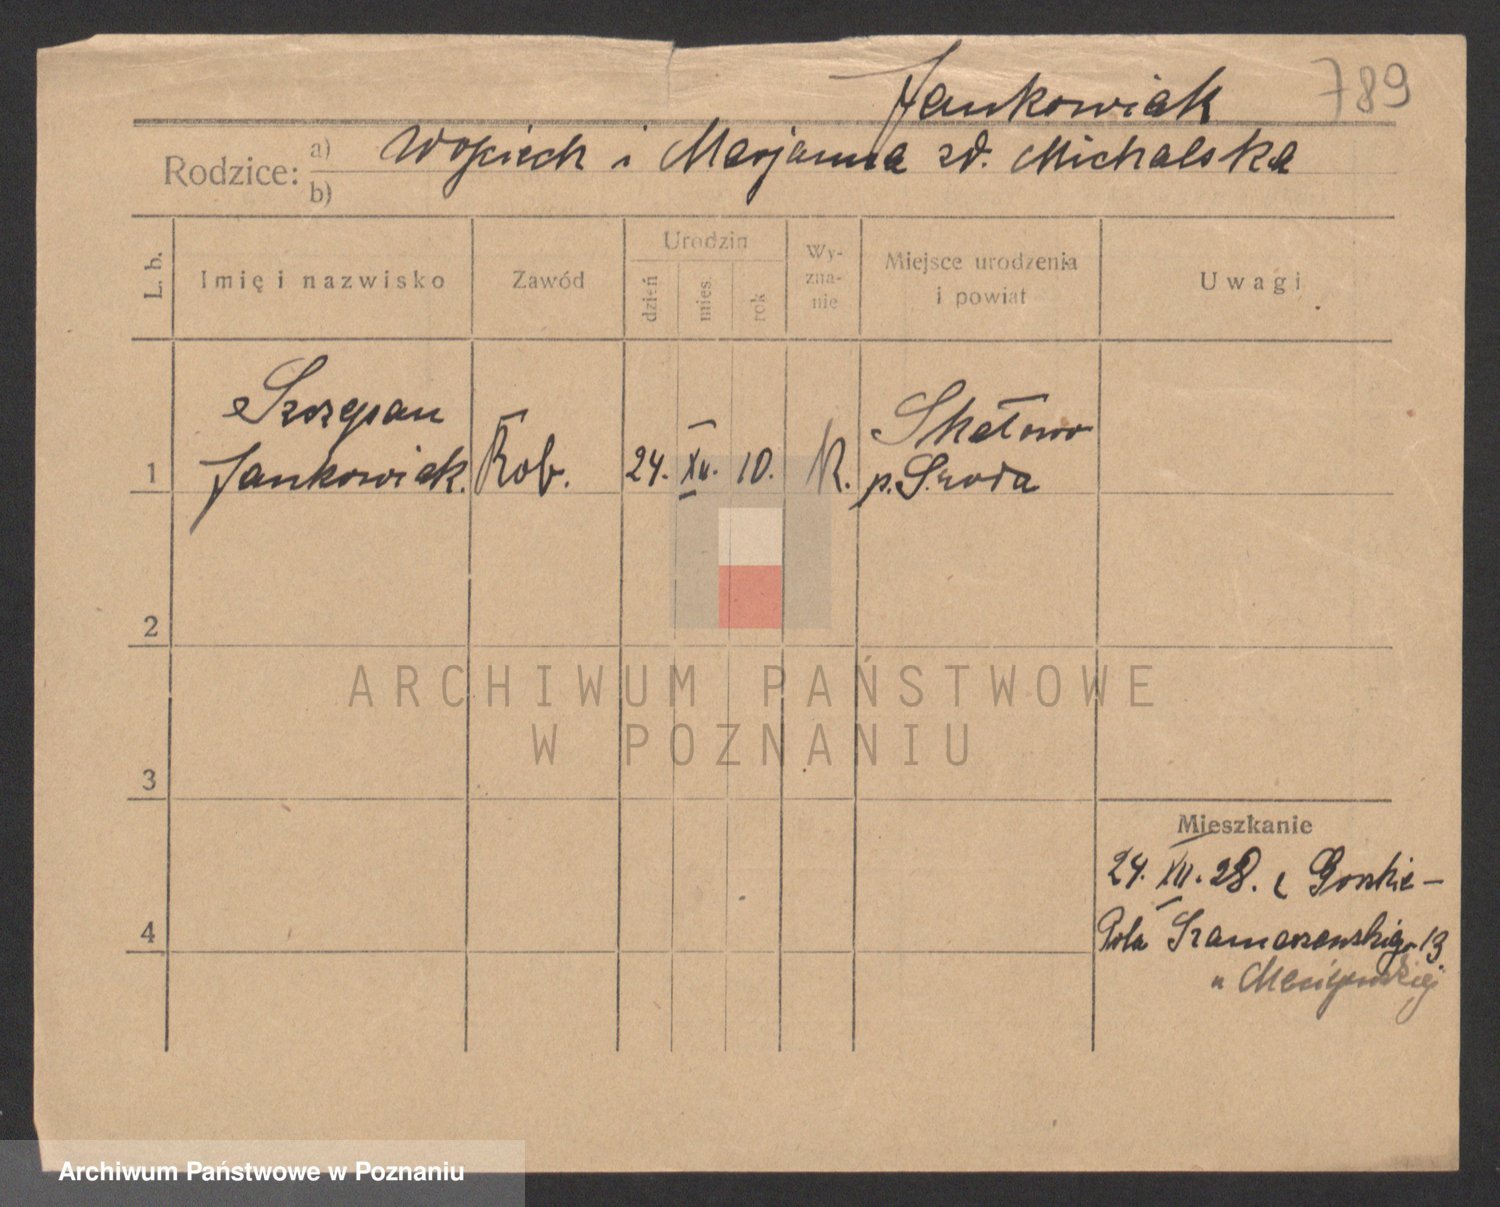 789
Jankowiak
Rodzice: a) b)
Wojciech i Marjanna zd. Michalska
L. b.
Imię i nazwisko
Zawód
Urodzin
dzień
mies.
rok
Wy-
zna-
nie
Miejsce urodzenia
i powiat
Uwagi
1
Szczepan
Jankowiak.
Rob.
24. XII. 10.
K.
Skałowo
p. Środa
2
3
4
Mieszkanie
24. XII. 28. z Gorskie-
Pola Szamarzewskiego 13
u
ARCHIWUM PAŃSTWOWE
W POZNANIU
Archiwum Państwowe w Poznaniu